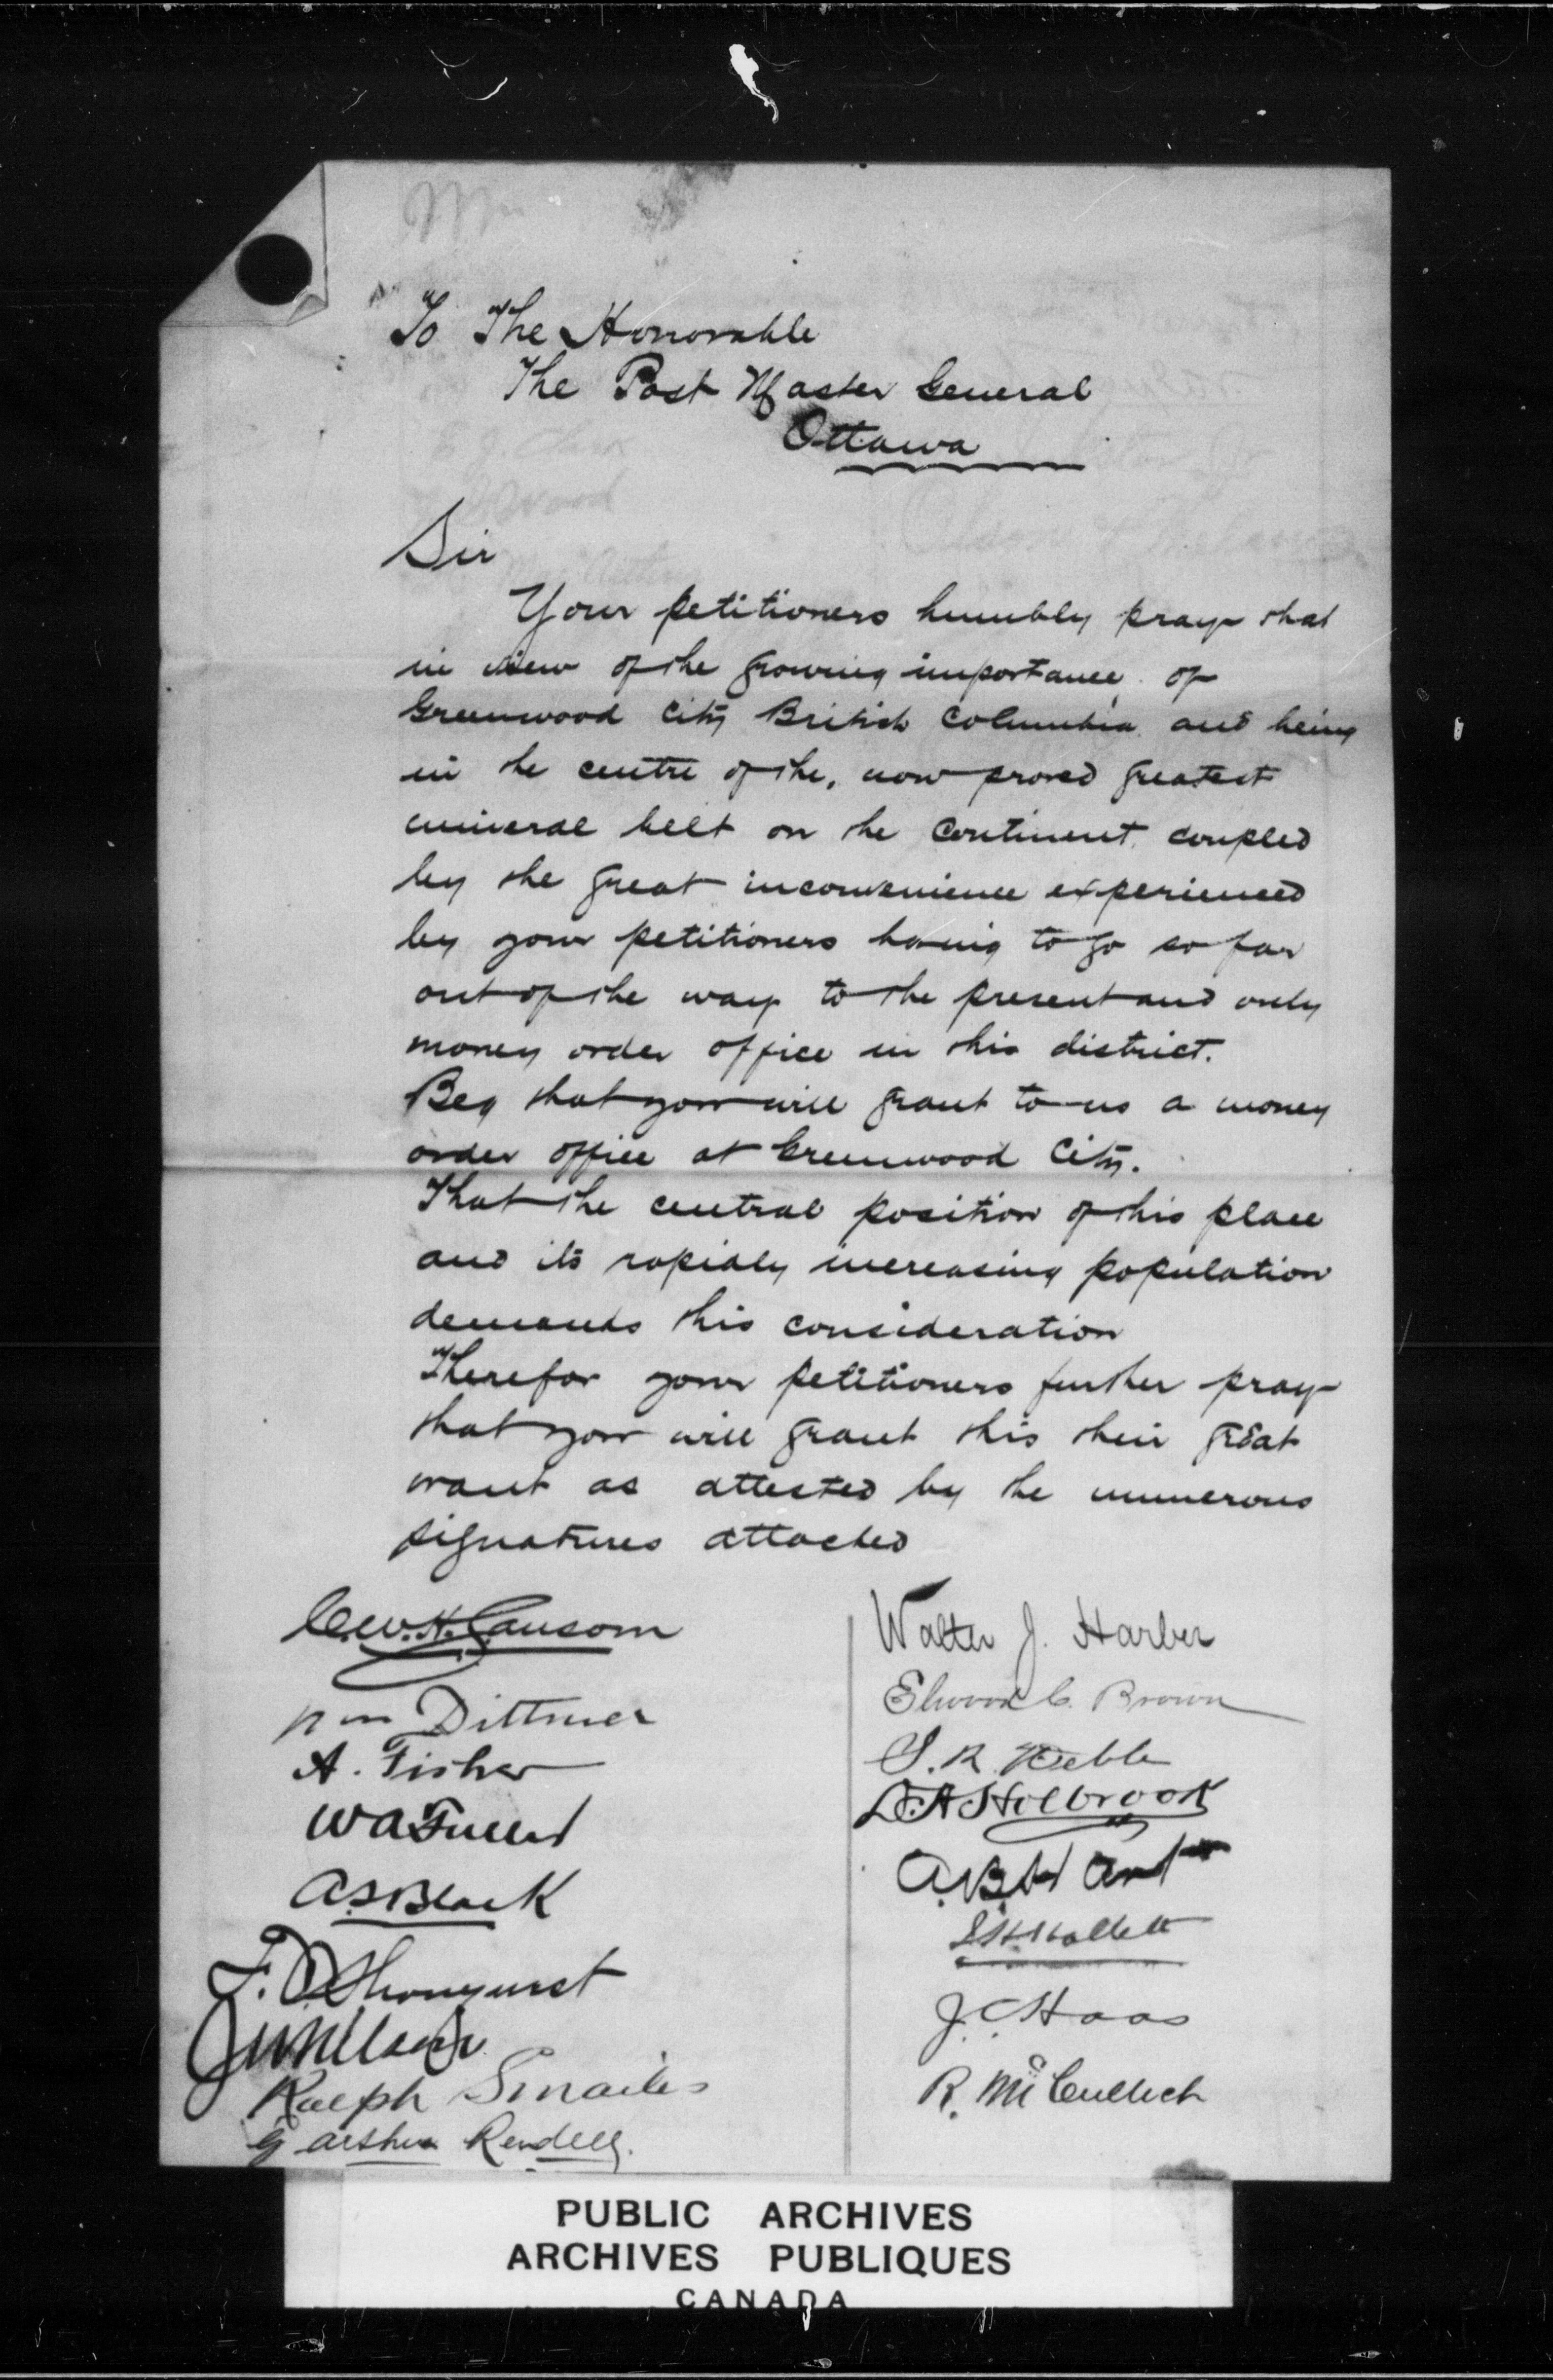 To The Honorable
The Post Master General
Ottawa
Sir
Your petitioners humbly pray that
in view of the growing importance of
Greenwood City British Columbia and being
in the centre of the, now proved greatest
mineral belt on the Continent, coupled
by the great inconvenience experienced
by your petitioners having to go so far
out of the way to the present and only
money order office in this district.
Beg that you will grant to us a money
order office at Greenwood City.
That the central position of this place
and its rapidly increasing population
demands this consideration
Therefor your petitioners further pray
that you will grant this their great
want as attested by the numerous
signatures attached
C.W.H. Sansom
Wm Dittmer
A. Fisher
W A Fuller
A.S. Black
Ralph Smailes
G Arthur Rendell.
Walter J. Harber
Elwood C. Brown
S. R.
D. A Holbrook
A.B. Hart
J.C. Haas
R. McCulloch
PUBLIC ARCHIVES
ARCHIVES PUBLIQUES
CANADA